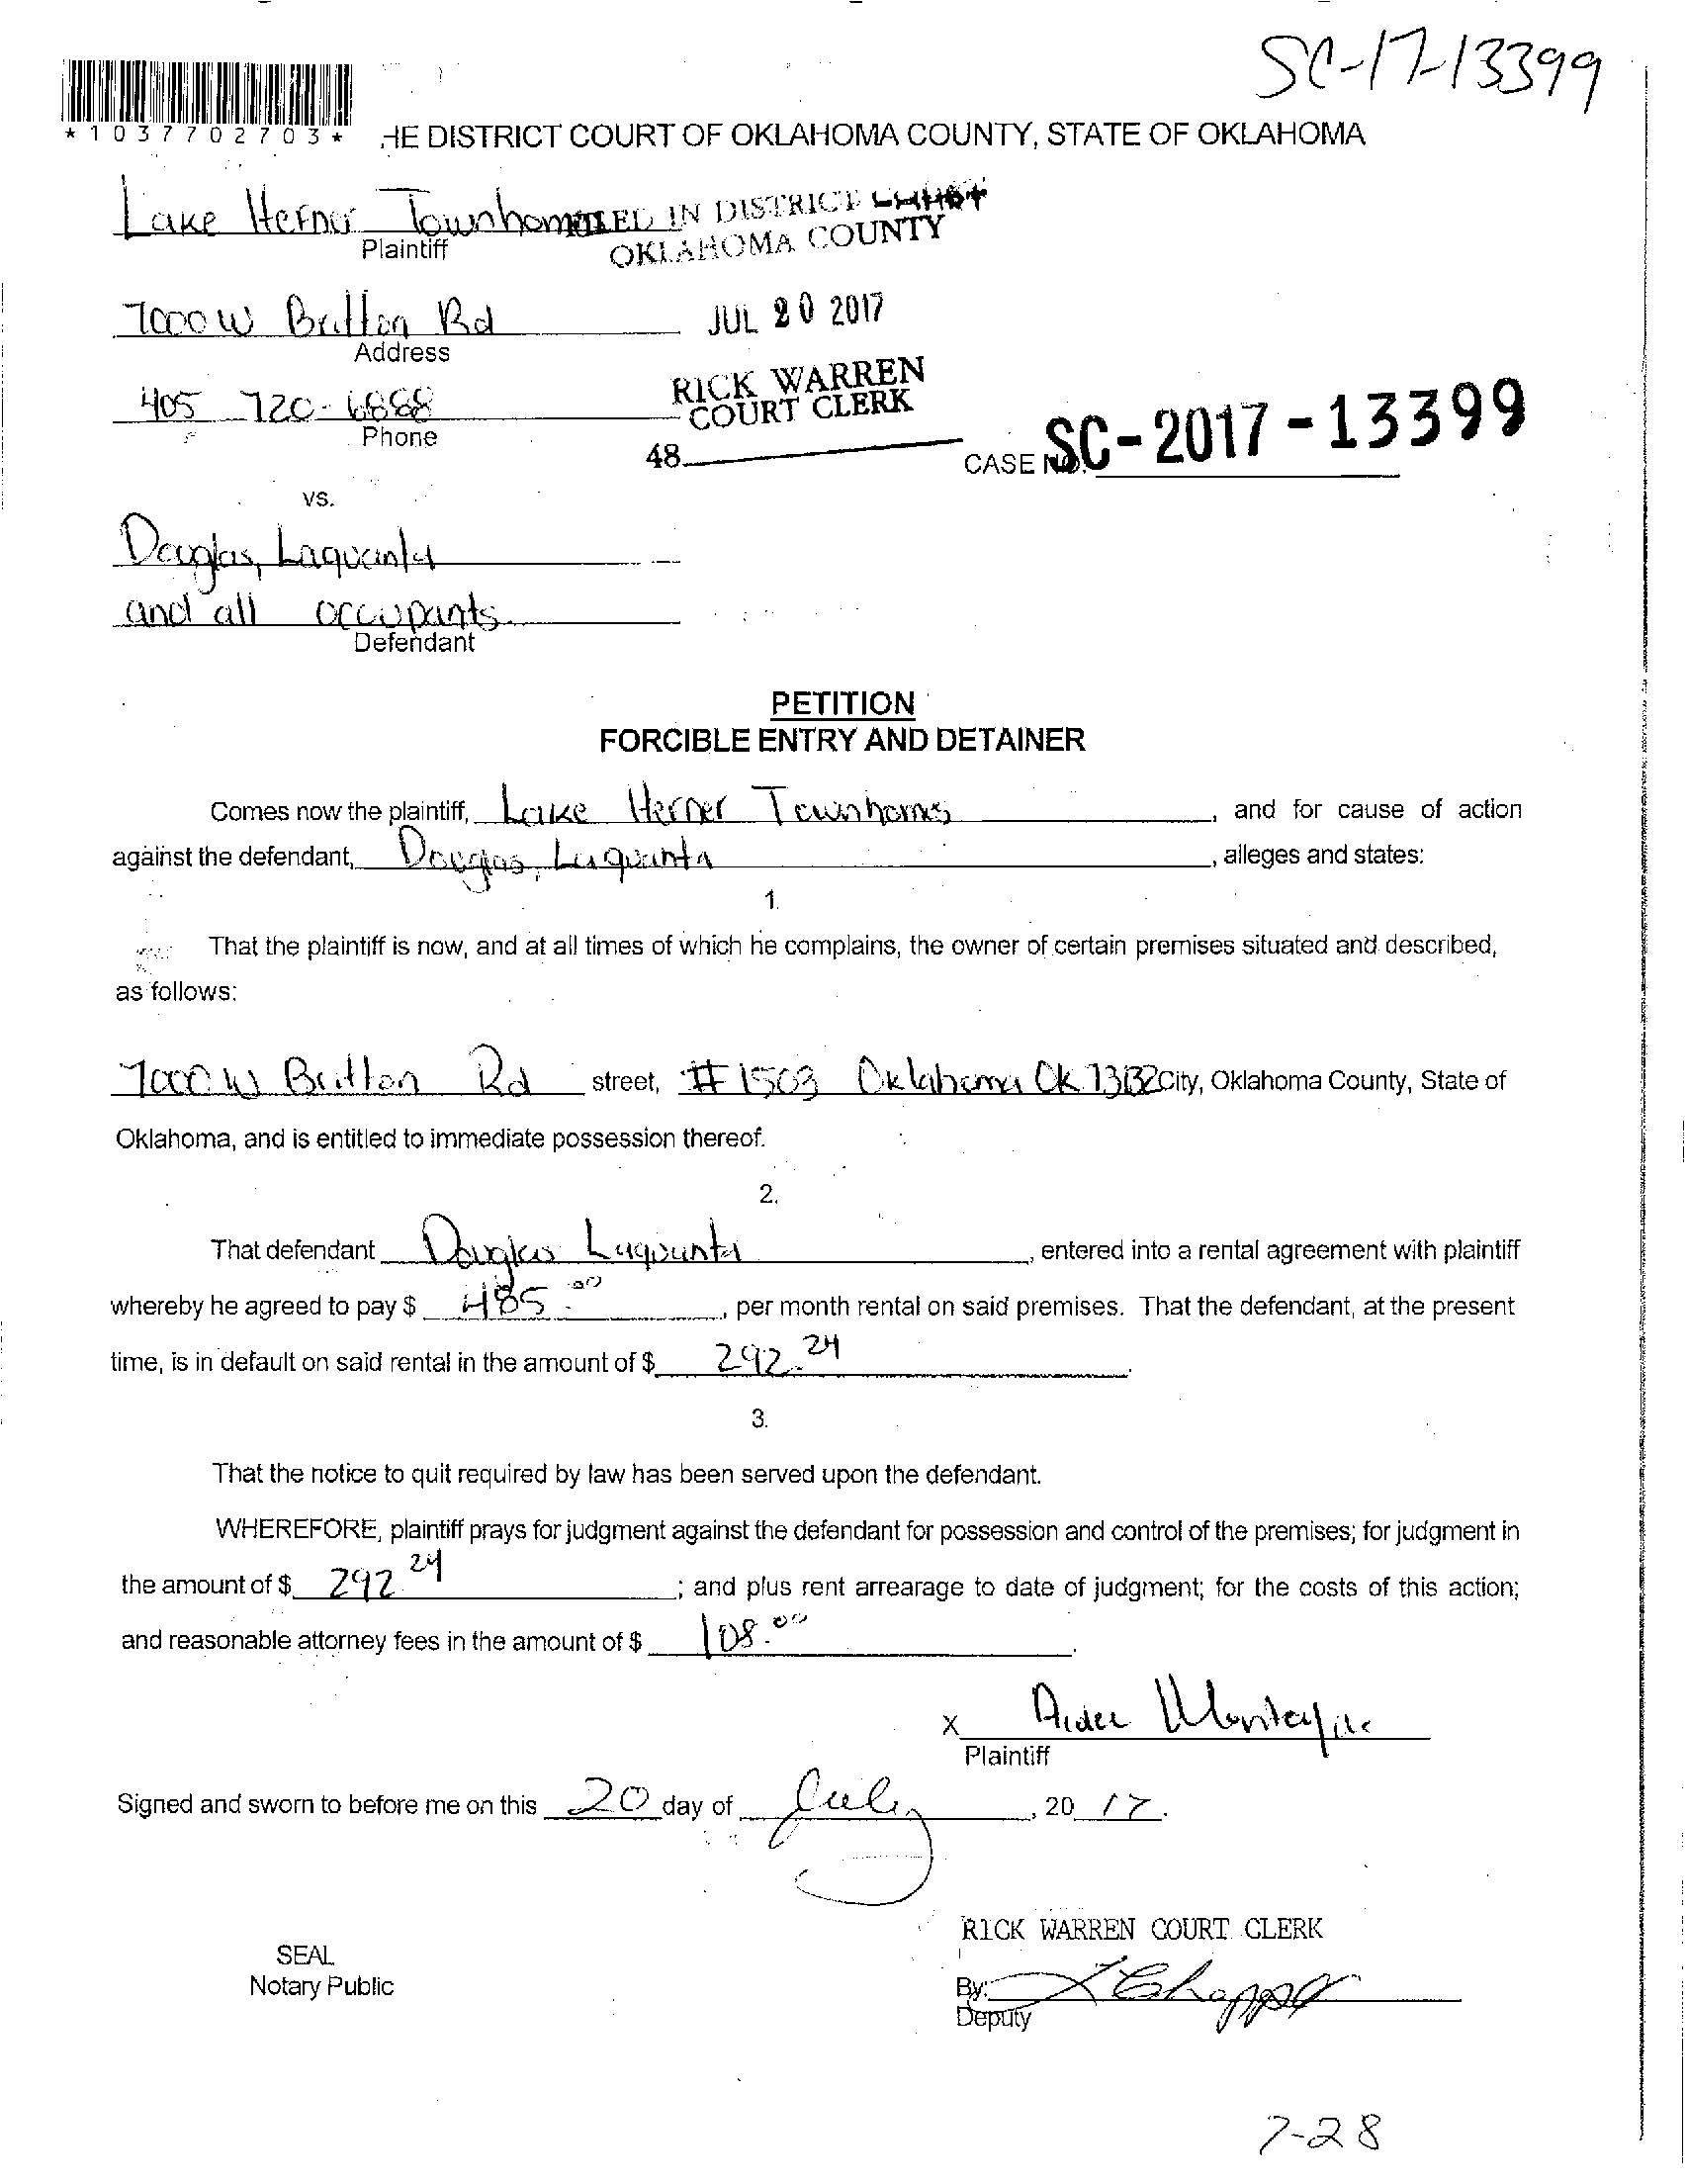 SC-17-13399
*1037702703*
HE DISTRICT COURT OF OKLAHOMA COUNTY, STATE OF OKLAHOMA
Lake Hefner Townhomes
FILED IN DISTRICT COURT
Plaintiff
OKLAHOMA COUNTY
7000 W Britton Rd
JUL 20 2017
Address
RICK WARREN
405 720-6888
COURT CLERK
Phone
48
CASE NO. SC-2017-13399
vs.
Douglas, Laquanta
and all occupants
Defendant
PETITION
FORCIBLE ENTRY AND DETAINER
Comes now the plaintiff, Lake Hefner Townhomes, and for cause of action
against the defendant, Douglas, Laquanta, alleges and states:
1.
That the plaintiff is now, and at all times of which he complains, the owner of certain premises situated and described,
as follows:
7000 W Britton Rd street, #1503 Oklahoma OK 73132 City, Oklahoma County, State of
Oklahoma, and is entitled to immediate possession thereof.
2.
That defendant Douglas Laquanta, entered into a rental agreement with plaintiff
whereby he agreed to pay $ 485.00, per month rental on said premises. That the defendant, at the present
time, is in default on said rental in the amount of $ 292.24.
3.
That the notice to quit required by law has been served upon the defendant.
WHEREFORE, plaintiff prays for judgment against the defendant for possession and control of the premises; for judgment in
the amount of $ 292.24; and plus rent arrearage to date of judgment; for the costs of this action;
and reasonable attorney fees in the amount of $ 108.00.
X
Plaintiff
Signed and sworn to before me on this 20 day of July, 20 17.
RICK WARREN COURT CLERK
SEAL
Notary Public
By:
Deputy
7-28